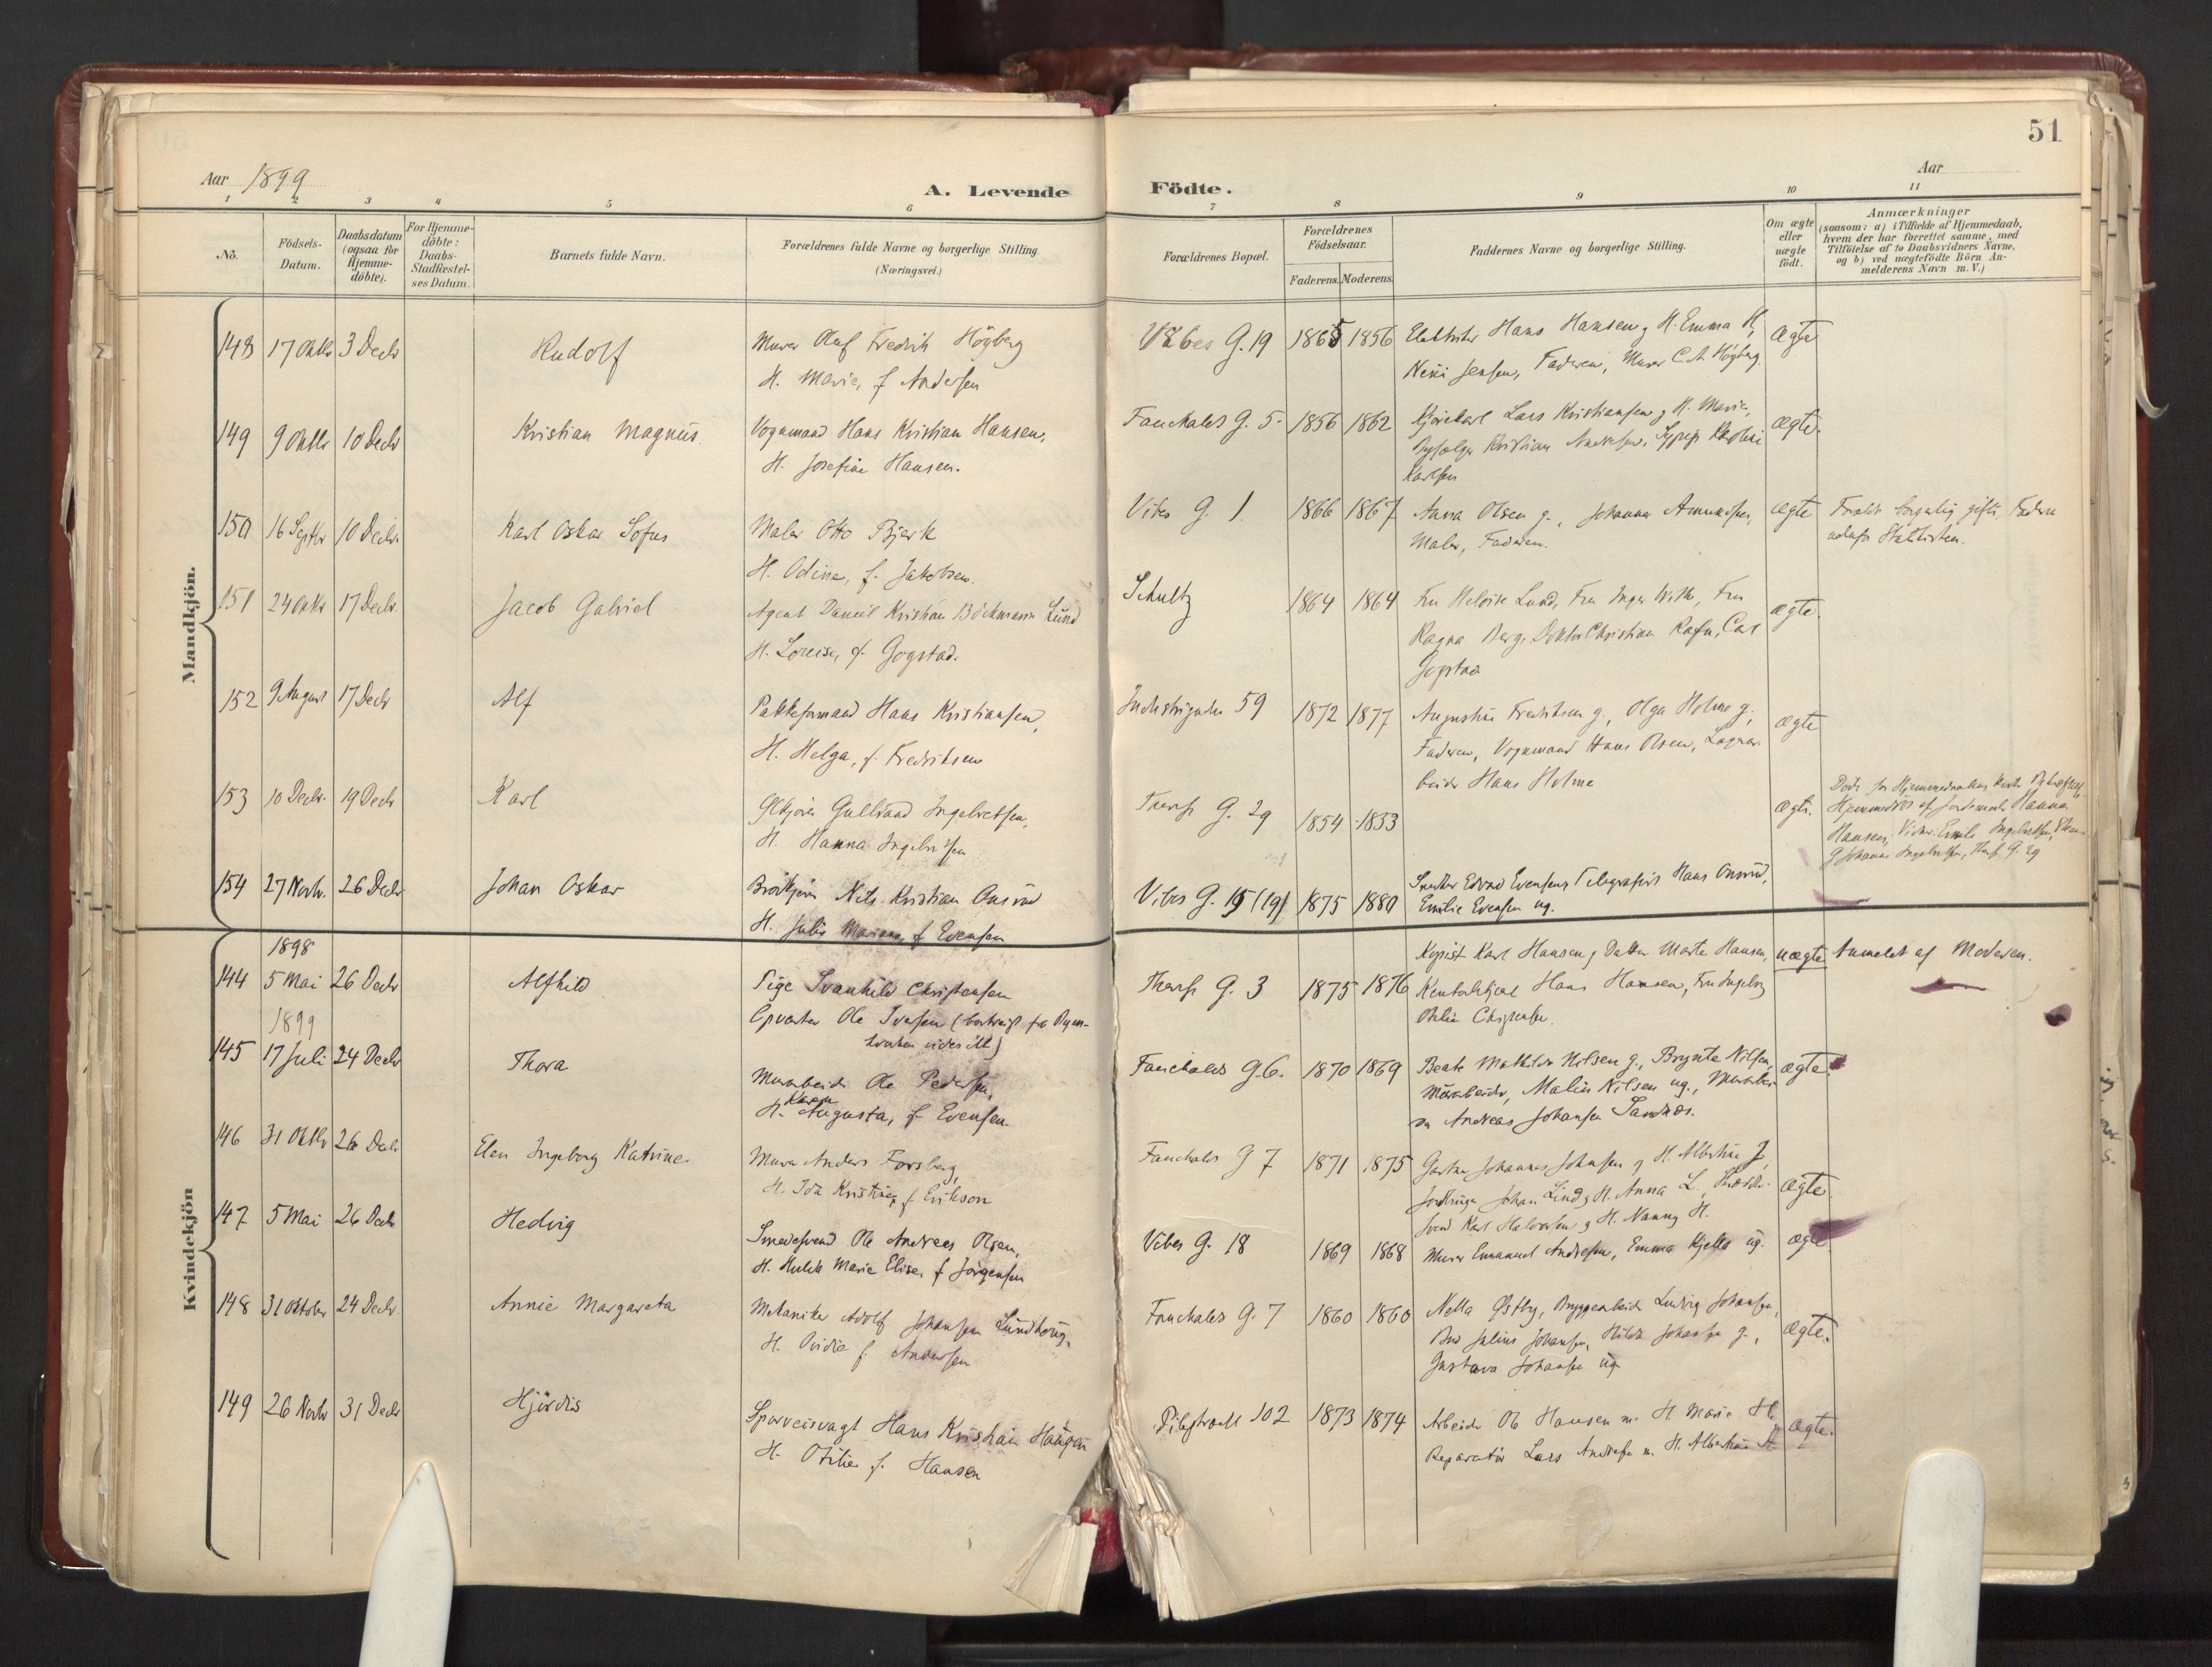 51
Aar 1899
Aar
A. Levende
Födte.
1 2 3 4 5 6
7 8 9 10 11
No.
Födsels-
Datum.
Daabsdatum
(ogsaa for
Hjemme-
döbte).
For Hjemme-
döbte:
Daabs-
Stadfæstel-
ses Datum.
Barnets fulde Navn.
Forældrenes fulde Navne og borgerlige Stilling.
(Næringsvei.)
Forældrenes Bopæl.
Forældrenes
Födselsaar.
Faderens. Moderens.
Faddernes Navne og borgerlige Stilling.
Om ægte
eller
uægte
födt.
Anmærkninger
(saasom: a) i Tilfælde af Hjemmedaab,
hvem der har forrettet samme, med
Tilföielse af to Daabsvidners Navne,
og b) ved uægtefödte Börn An-
melderens Navn m. V.)
Mandkjön.
148 17 Oktbr 3 Decbr Rudolf
Murer Oluf Fredrik Högberg
H. Marie, f Andersen
Vibes G. 19 1865 1856
Hans Hansen g H. Emma H,
Jensen, Faderen, Murer C. A. Högberg.
Ægte
149 9 Oktbr 10 Decbr Kristian Magnus.
Vognmand Hans Kristian Hansen,
H. Josefine Hansen.
Fauchalds G. 5. 1856 1862
Kjörekarl Lars Kristiansen g H. Marie,
Kristian Andersen,
Karlsen
ægte.
150 16 Septbr 10 Decbr. Karl Oskar Sofus
Maler Otto Bjerk
H. Odine, f. Jakobsen.
Vibes G 1. 1866 1867
Anna Olsen g., Johanna Amundsen,
Maler, Faderen.
ægte
Foræld. borgerlig gifte, Faderen
udaf Statskirken.
151 24 Oktbr 17 Decbr. Jacob Gabriel
Agent Daniel Kristian Böckmann Lund
H. Lovise, f. Gogstad.
Schultz 1864 1864
Fru Heloise Lund, Fru Inger With, Fru
Ragna Berg, Doktor Christian Rafn, Carl
Gogstad
ægte.
152 9 August 17 Decb Alf
Pakkeformand Hans Kristiansen,
H. Helga, f. Fredriksen
Industrigaden 59 1872 1877
Augustine Fredriksen g., Olga Holme g.,
Faderen, Vognmand Hans Olsen, Lagerar-
beider Hans Holme
ægte
153 10 Decbr. 19 Decb Karl
Gullbrand Ingebretsen,
H. Hanna Ingebretsen
Thereses G. 29 1854 1853
ægte.
Hjemmedöbt af Jordemoder Hanna
Hansen, Ingebretsen,
g Johanne Ingebretsen, Theres. G. 29
154 27 Novbr. 26 Decbr Johan Oskar
Brödkjörer Nils Kristian Onsrud
H. Julie Mariane f Evensen
Vibes G. 15 (19) 1875 1880
Snedker Edvard Evensen, Telegrafist Hans Onsrud,
Emilie Evensen ug.
Kvindekjön
1898
144 5 Mai 26 Decbr Alfhild
Pige Svanhild Christensen
Opvarter Ole Iversen (bortreist fra Byen-
Thereses G. 3 1875 1876
Kopist Karl Hansen, Datter Marte Hansen,
Kontorbetjent Hans Hansen, Fru Ingeborg
Othilie Christensen.
uægte
Anmeldt af Moderen.
1899
145 17 Juli 24 Decbr Thora
Murarbeider Ole Pedersen,
H. Karen Augusta, f Evensen.
Fauchalds G 6. 1870 1869
Beate Mathilde Nilsen g., Brynte Nilsen,
Murarbeider, Malin Nilsen ug., Murarbei-
der Andreas Johansen Sandnæs.
ægte.
146 31 Oktbr 26 Decbr Elen Ingeborg Katrine.
Murer Anders Forsberg,
H. Ida Kristine, f Erikson
Fauchalds G 7 1871 1875
Gartner Johannes Johnsen g H. Albertine J,
Johan Lind g H. Anna L,
Karl Halvorsen g H. Nanny H.
ægte
147 5 Mai 26 Decbr Hedvig
Smedesvend Ole Andreas Olsen,
H. Hulda Marie Elise, f Jörgensen
Vibes G. 18 1869 1868
Murer Emanuel Andresen, Emma Kjelle ug.
ægte
148 31 Oktober 24 Decbr. Annie Margareta
Mekaniker Adolf Johansen Lundhaug,
H. Ovidia f. Andersen
Fauchalds G. 7 1860 1860
Nella Østby, Bryggearbeider Ludvig Johansen,
Julius Johansen, Hilda Johansen g.,
Gustava Johansen ug
ægte.
149 26 Novbr 31 Decbr Hjördis
Sporveisvagt Hans Kristian Haugen
H. Otilie f. Hansen
Pilestrædet 102 1873 1874
Arbeider Ole Hansen m. H. Marie H,
Reparatör Lars Andresen m. H. Albertine A
ægte.